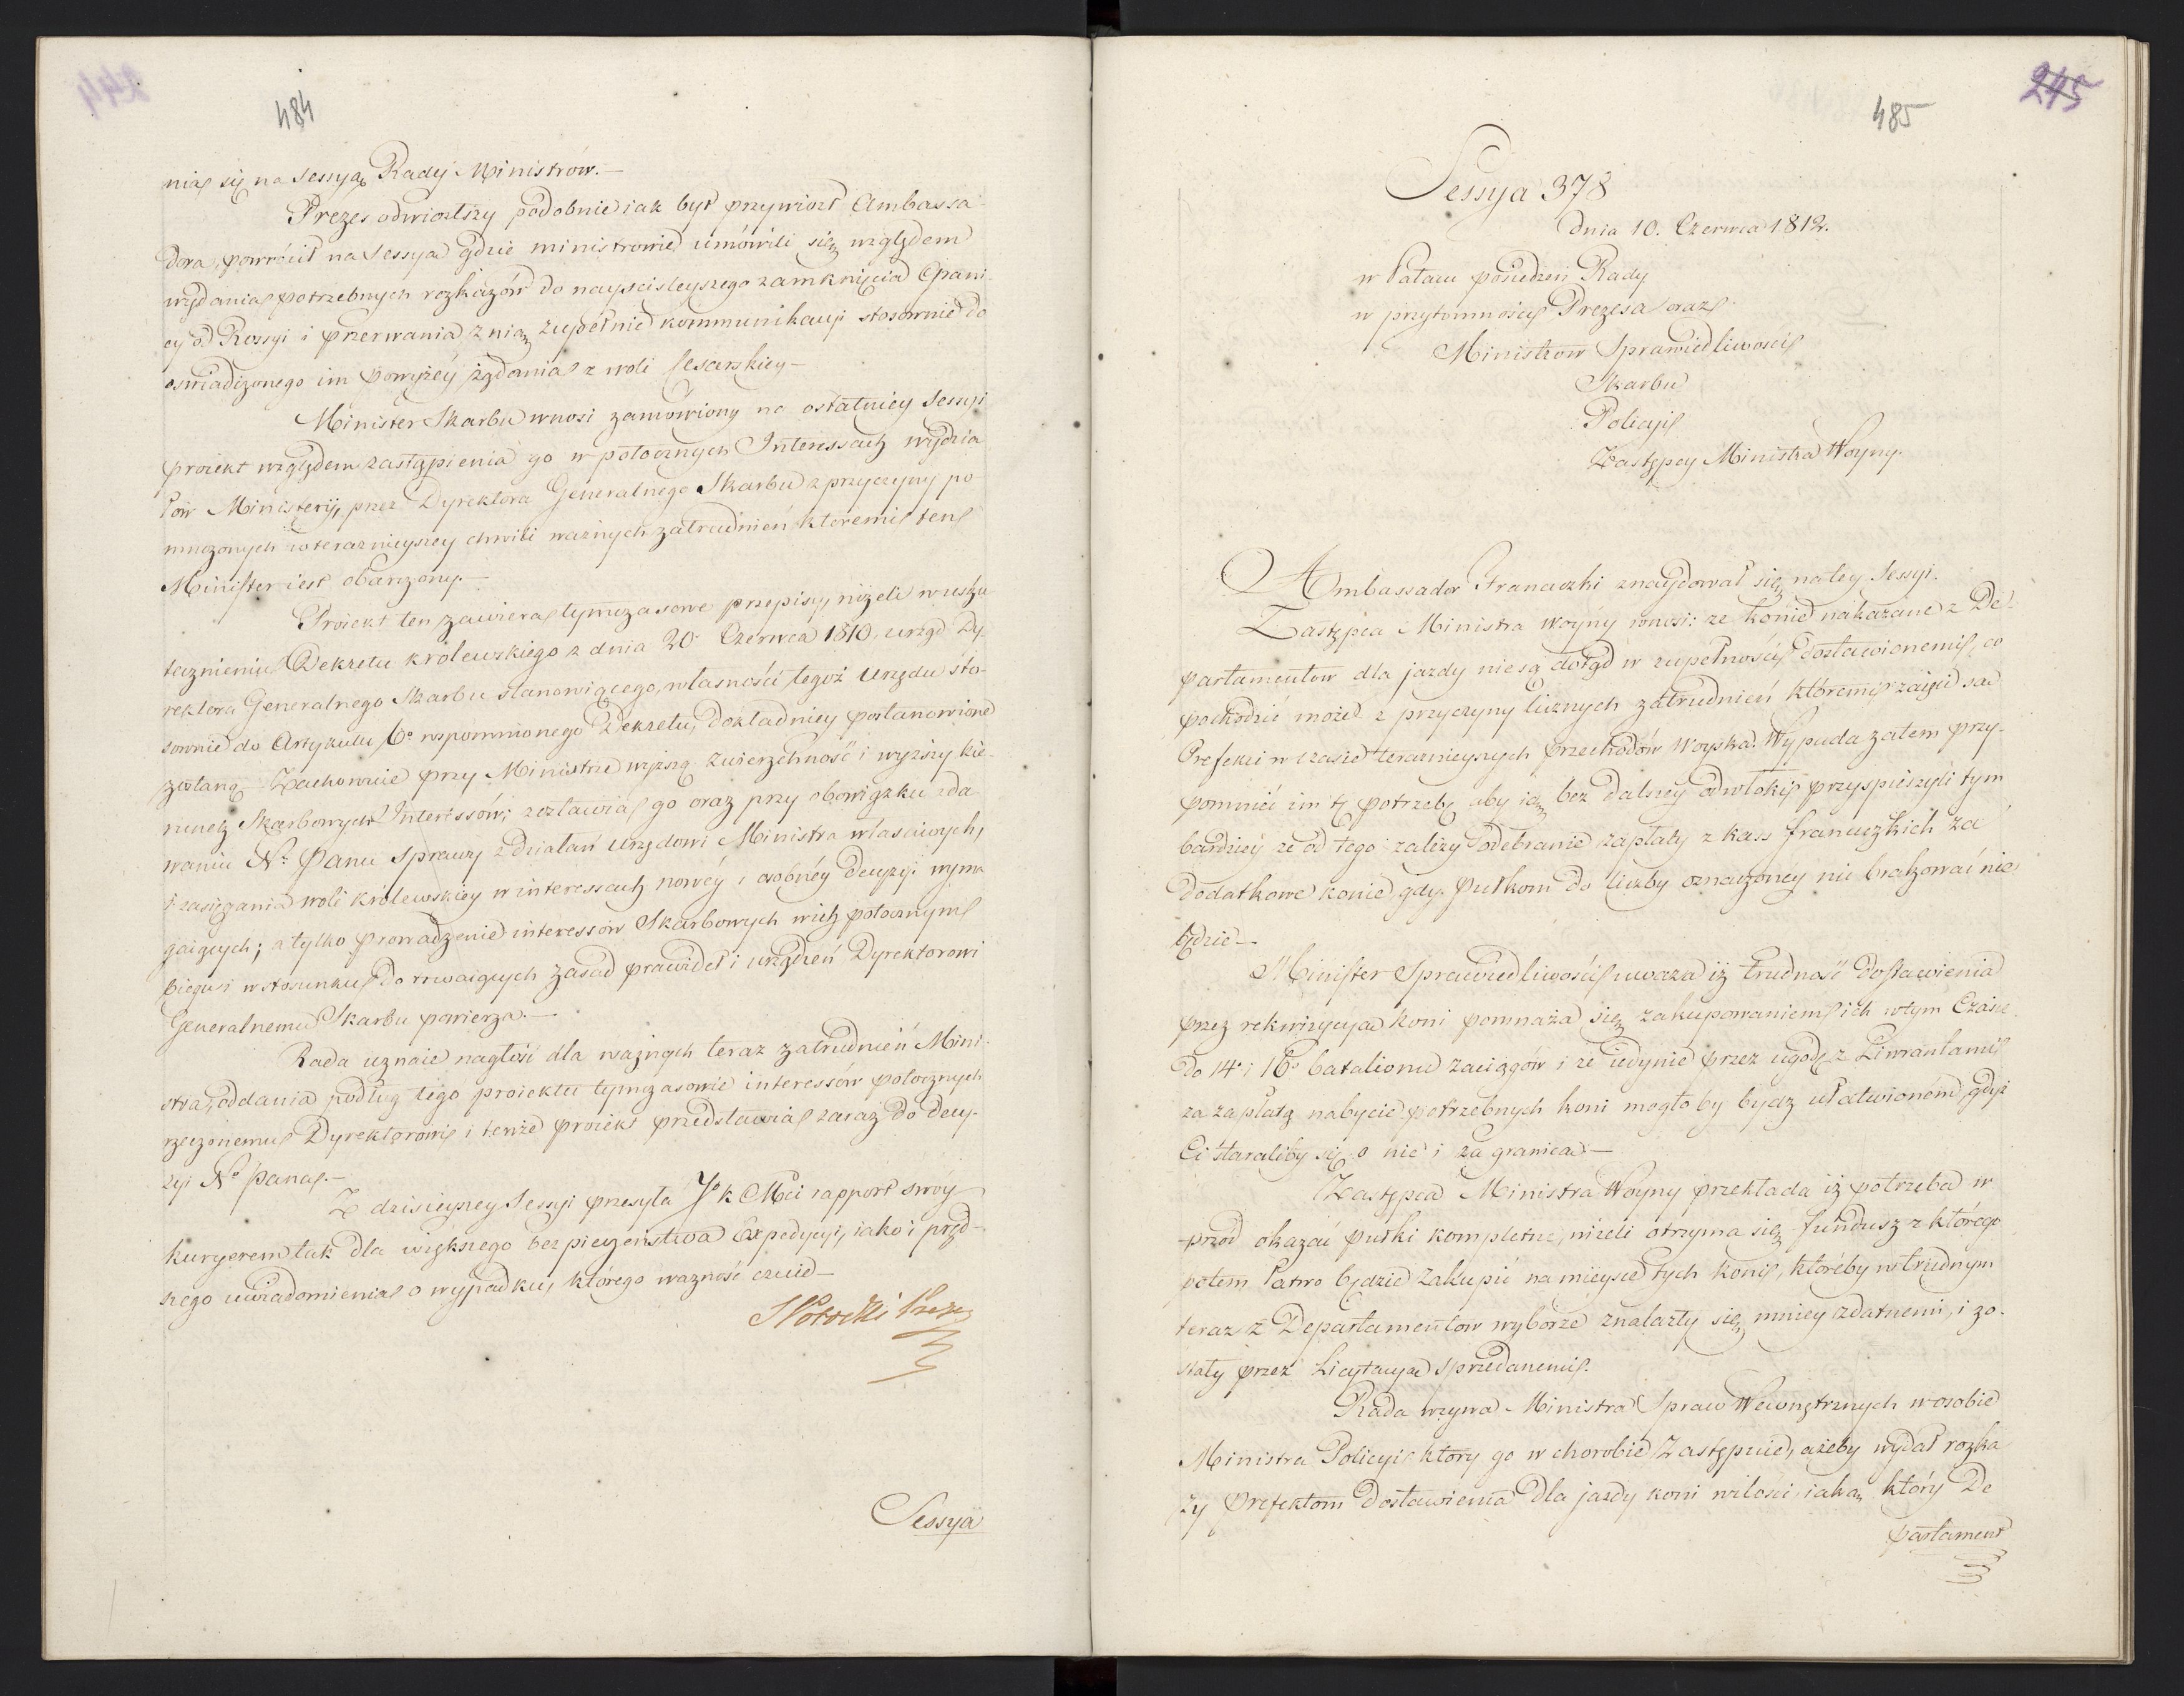 484
nia się na Sessyą Rady Ministrów.—
Prezes odwiozłszy podobnie iak był przywiozł Ambassa-
dora, powrócił na Sessyą gdzie ministrowie umówili się względem
wydania potrzebnych rozkazów do nayscisleyszego zamknięcia Grani-
cy od Rossyi i przerwania z nią zupełnie kommunikacyi stosownie do
oswiadczonego im powyżéy żądania z woli Cesarskiey—
Minister Skarbu wnosi zamówiony na ostatniey Sessyi
proiekt względem zastąpienia go w potocznych Interessach wydzia
łów Ministeryi, przez Dyrektora Generalnego Skarbu z przyczyny po
mnożonych w teraznieyszey chwili ważnych zatrudnień któremi ten
Minister iest obarczony.—
Proiekt ten zawiera tymczasowe przepisy, niżeli w usku
tecznieniu Dekretu królewskiego z dnia 20 Czerwca 1810. urząd Dy-
rektora Generalnego Skarbu stanowiącego, własności tegoż urzędu sto-
sownie do Artykułu 6º wspomnionego Dekretu, dokładniey postanowione
zostaną. Zachowuie przy Ministrze wyższą zwierzchność i wyższy kie-
runek Skarbowych Interessów; zostawia go oraz przy obowiązku zda-
waniu Nº Panu sprawy z działań urzędowi Ministra właściwych,
i zasięgania woli królewskiey w interessach nowéy i osobnéy decyzyi wyma
gaiących; a tylko prowadzenie interessów Skarbowych w ich potocznym
biegu i w stosunku do trwaiących zasad prawideł i urządzeń Dyrektorowi
Generalnemu Skarbu powierza.—
Rada uznaie nagłość dla ważnych teraz zatrudnień Mini-
stra, oddania podług tego proiektu tymczasowie interessów potocznych
rzeczonemu Dyrektorowi i tenże proiekt przedstawia zaraz do decy-
zyi Nº Pana.—
Z dzisieyszey Sessyi przesyła Jº K Mci rapport swóy
kuryerem tak dla większego bezpieczeństwa Expedycyi, iako i pręd-
szego uwiadomienia o wypadku, którego ważność czuie—
S Potocki Prezes
Sessya
245
485
Sessya 378
dnia 10. Czerwca 1812.
w Pałacu posiedzeń Rady
w przytomności Prezesa oraz
Ministrów Sprawiedliwości
Skarbu
Policyi
Zastępcy Ministra Woyny.
Ambassador Francuzki znaydował się na tey Sessyi.
Zastępca Ministra woyny wnosi: ze konie nakazane z De-
partamentow dla jazdy nie są dotąd w zupełności dostawionemi, co
pochodzić może z przyczyny licznych zatrudnień któremi zaięci są
Prefekci w czasie teraznieyszych przechodów Woyska. Wypada zatem przy-
pomnić im tę potrzebę aby ią bez dalszéy odwłoki przyspieszyli tym
bardziéy ze od tego zależy odebranie zapłaty z kass francuzkich za
dodatkowe konie gdy Pułkom do liczby oznaczonéy nie brakować nie
będzie—
Minister Sprawiedliwości uważa iż trudność dostawienia
przez rekwizycyą koni pomnaża się zakupowaniem ich w tym Czasie
do 14º i 16º batalionu zaciągów i ze iedynie przez ugodę z Liwerantami
za zapłatą nabycie potrzebnych koni mogłoby bydz ułatwioném, gdyż
Ci staraliby się o nie i za granicą—
Zastępca Ministra Woyny przekłada iż potrzeba w
przód okazać pułki kompletne, nizeli otrzyma się fundusz z którego
potem łatwo będzie zakupić na mieysce tych koni, któreby w trudnym
teraz z Departamentow wyborze znalazły się mniey zdatnemi, i zo-
stały przez Licytacyą sprzedanemi.
Rada wzywa Ministra Spraw Wewnętrznych w osobie
Ministra Policyi który go w chorobie zastępuie, ażeby wydał rozka
zy Prefektom dostawienia dla jazdy koni w ilości iaką który De
partament